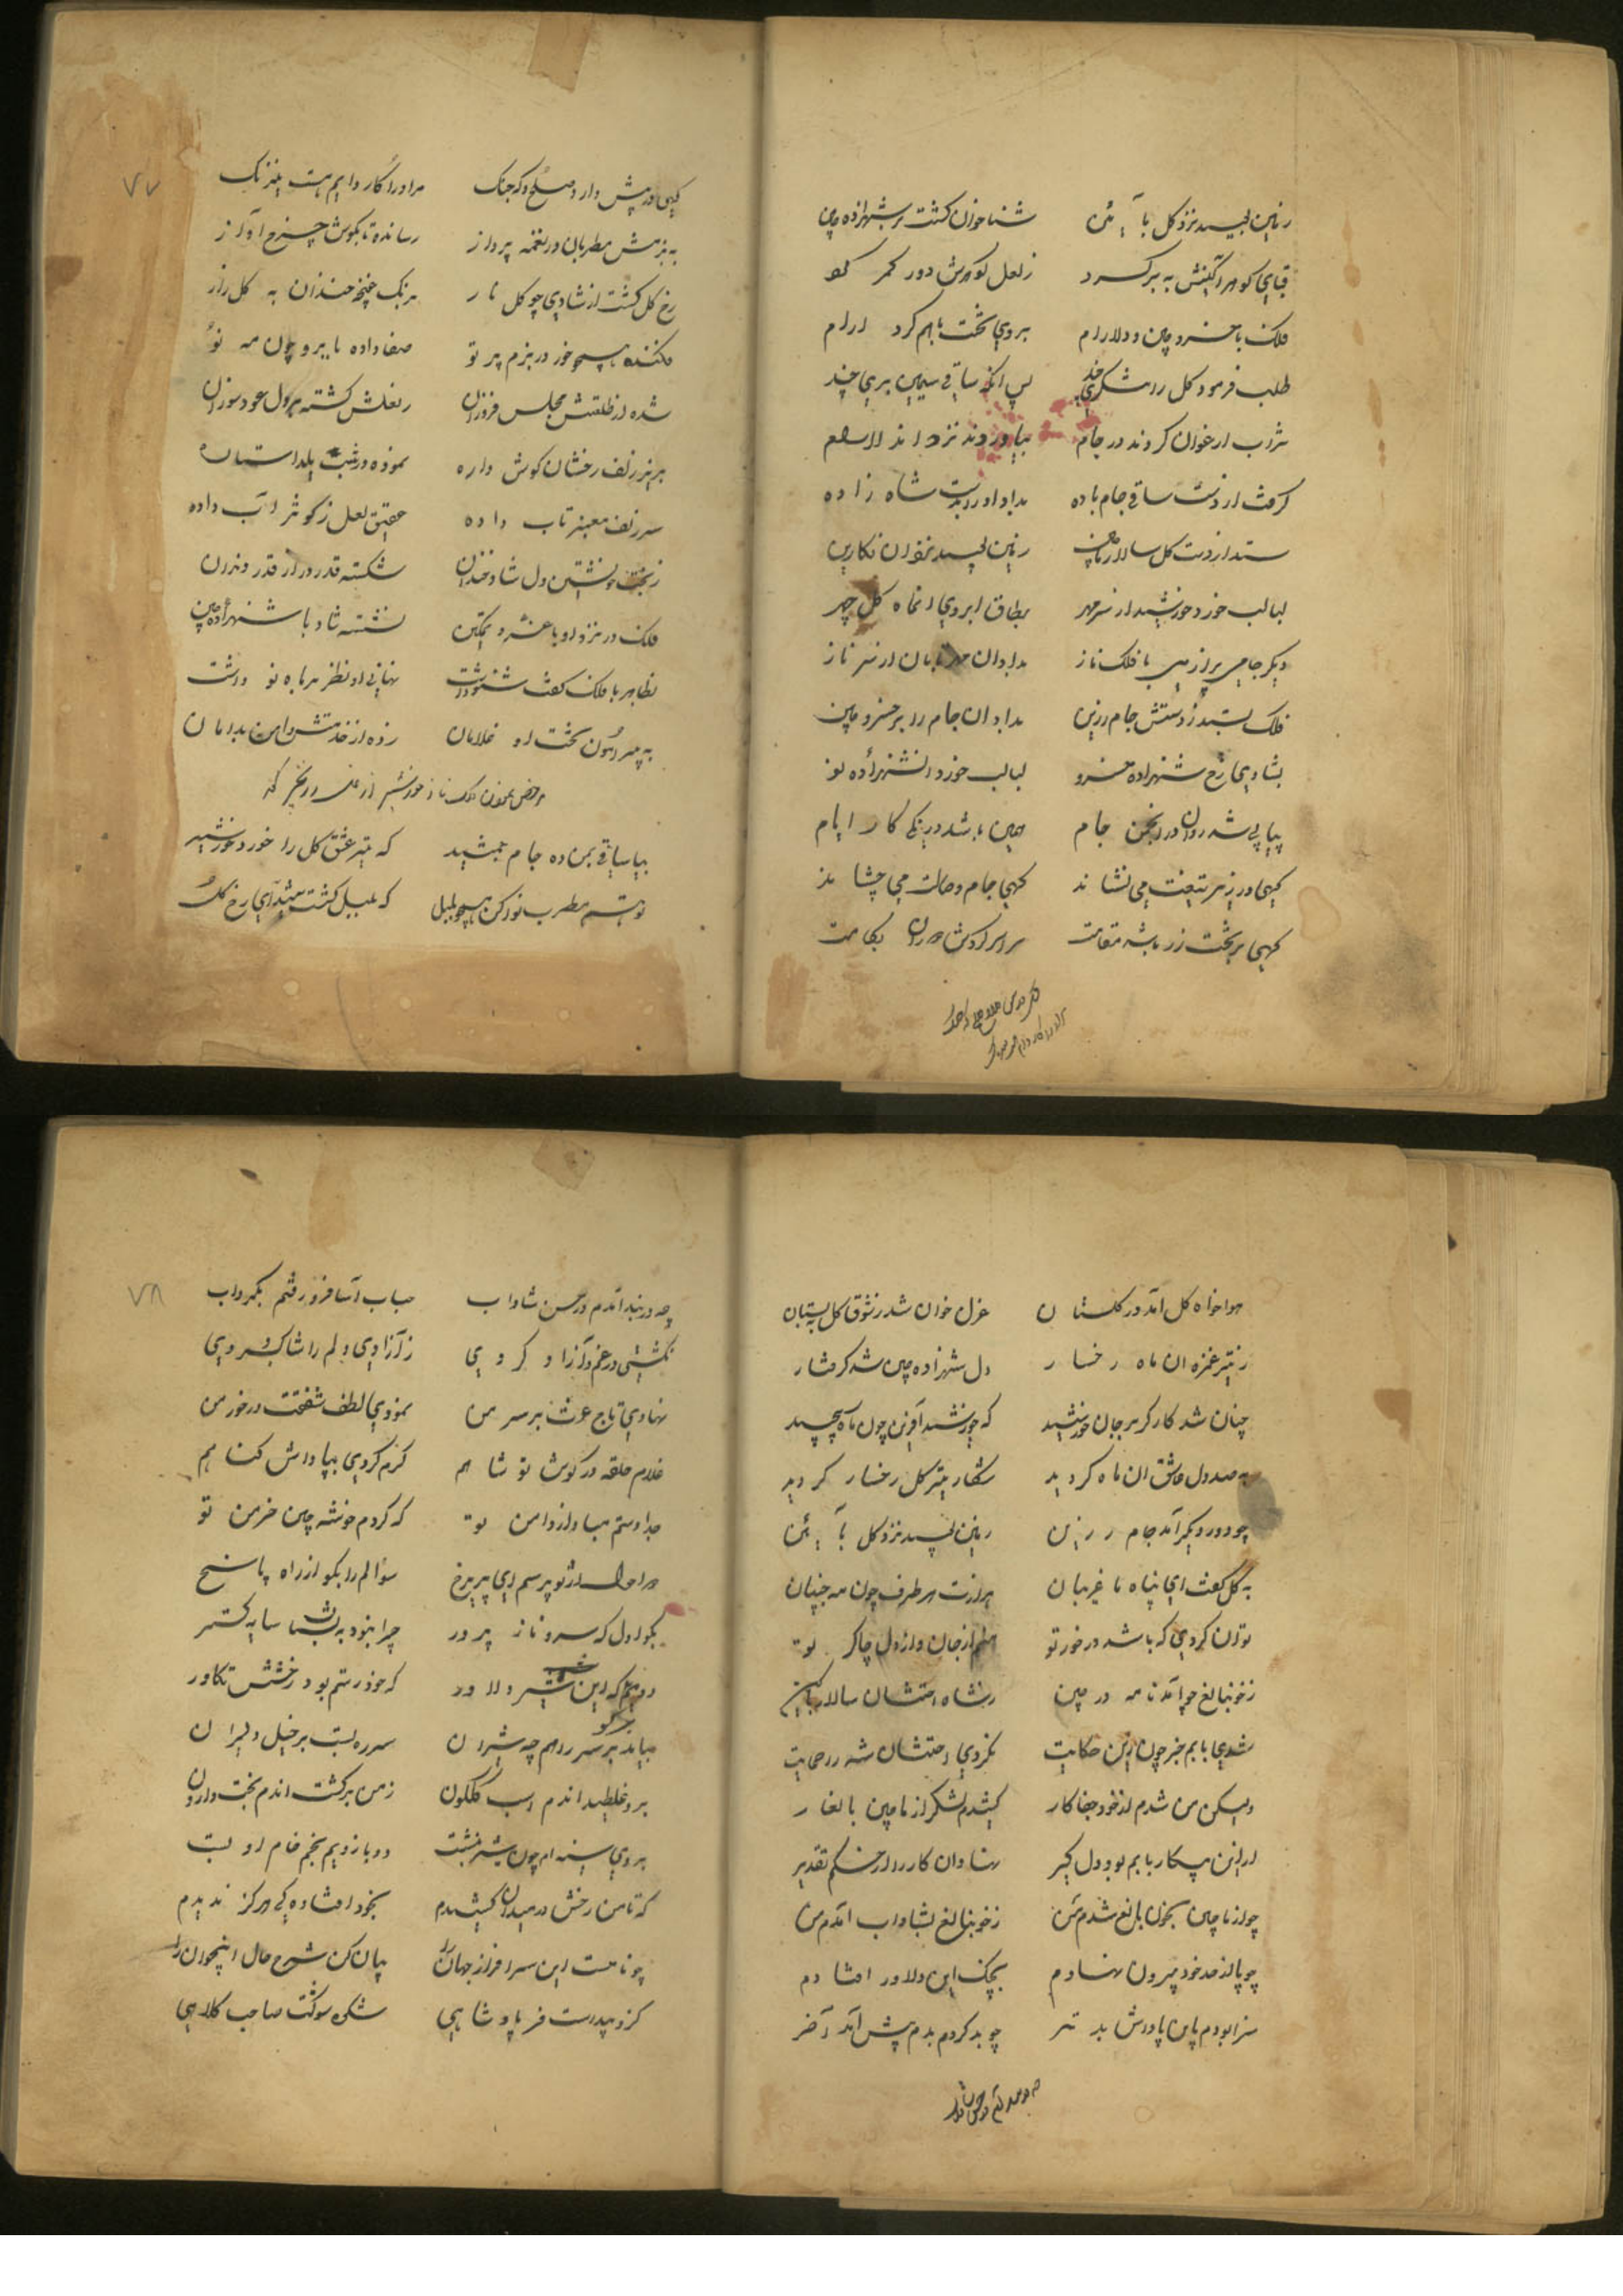 زمین بوسید نزد گل بآیین شناخوان گشت بر شهزاده چین
قبای گوهر آگینش به بر کرد ز لعل گوهرش دور کمر کرد
فلک با خسرو چین و دلارام بروی تخت باهم کرد آرام
طلب فرمود گل را شکری خند پس آنکه ساقی سیمین بری چند
شراب ارغوان کردند در جام بیاوردند نزد
گرفت از دست ساقی جام باده بداد او را بدست شاه زاده
ستد از دست گل سالار ماچین زمین بوسید نزد آن نگارین
لبالب خورد خورشید از سر مهر بطاق ابروی آن ماه گل چهر
دیگر جامی پر از می با فلک ناز بداد آن مه تابان از سر ناز
فلک بستد ز دستش جام زرین بداد آن جام را بر خسرو چین
بشادی رخ شهزاده خسرو لبالب خورد آن شهزاده نو
پیاپی شد روان در انجمن جام چنین باشد در نیکی کار ایام
گهی در زهر تیغت می نشاند گهی جام وصالت می چشاند
گهی بر تخت زر باشد مقامت سراسر گردش دوران بکامت
گهی در پیش دارد صلح و گه جنگ مر او را کار دایم هست نیرنگ
به بزمش مطربان در نغمه پرداز رسانده تا بگوش چرخ آواز
رخ گل گشت از شادی چو گل نار برنگ غنچه خندان به گل زار
فکنده همچو خور در بزم پرتو صفا داده با برو چون مه نو
شده از طلعتش مجلس فروزان ز لعلش گشته هر دل عود سوزان
بزیر زلف رخشان گوش واره نموده در شب یلدا ستاره
سر زلف معنبر تاب داده عقیق لعل ز کوثر آب داده
ز بخت خویشتن دل شاد و خندان شکسته قدر در از قدر دندان
فلک در نزد او با عز و تمکین نشسته شاد با شهزاده چین
بظاهر با فلک گفت شنو داشت نهانی او نظر بر ماه نو داشت
به پیرامون تخت او غلامان زده از خدمتش دامن بدامان
بیا ساقی بمن ده جام جمشید که تیر عشق گل را خورد خورشید
تو هم مطرب نوا کن همچو بلبل که بلبل گشت شیدای رخ گل
۷۷
هواخواه گل آمد در گلستان غزل خوان شد ز شوق گل به بستان
ز تیر غمزه آن ماه رخسار دل شهزاده چین شد گرفتار
چنان شد کارگر بر جان خورشید که خورشید آفرین چون ماه پیچید
به صد دل عاشق آن ماه گردید شکار تیر گل رخسار گردید
چو دور دیگر آمد جام زرین زمین بوسید نزد گل بآیین
به گل گفت ای پناه ما غریبان هرآنت هر طرف چون مه جبینان
توان کردی که باشد در خور تو منم از جان و از دل چاکر تو
ز خونبالغ چو آمد نامه در چین ز شاه احتشان سالار ماچین
شدی بابم خبر چون زین حکایت نکردی احتشان شه را حمایت
ولیکن من شدم از خود جفاکار کشیدم لشکر از ماچین بالغار
از این پیکار بابم بود دل گیر نهاد آن کار را از حکم تقدیر
چو از ماچین بخون بالغ شدم من ز خونبالغ بشاداب آمدم من
چو پا از حد خود بیرون نهادم بچنگ این دلاور افتادم
سزا بودم باین پاداش بدتر چو بد کردم بدم پیش آمد آخر
چه در بند آمدم در حسن شاداب حباب آسا فرو رفتم بگرداب
نکشتی در غم و آزاد کردی ز آزادی دلم را شاد کردی
نهادی تاج عزت بر سر من نمودی لطف شفقت در خور من
غلام حلقه در گوش تو شاهم کرم کردی بپاداش گناهم
جدا دستم مباد از دامن تو که گردم خوشه چین خرمن تو
در احوال از تو پرسم ای پریرخ سؤالم را بگو از راه پاسخ
بگو اول که سرو ناز پرور چرا نبود به بستان سایه گستر
دویم که این شیر دلاور که خود رستم بود رخشش تکاور
بیاید بر سر راهم چه شیران سر ره بست بر خیل دلیران
برو غلطید اندم اسب گلگون ز من برگشت اندم بخت وارون
بروی سینه ام چون شیر بنشست دو بازویم بخم خام او بست
که تا من رخش در میدان کشیدم بخود افتاده گی هرگز ندیدم
چو نامست این سرافراز جهان را بیان کن شرح حال این جوان را
کزو پیداست فر پادشاهی شکوه شوکت صاحب کلاهی
۷۸